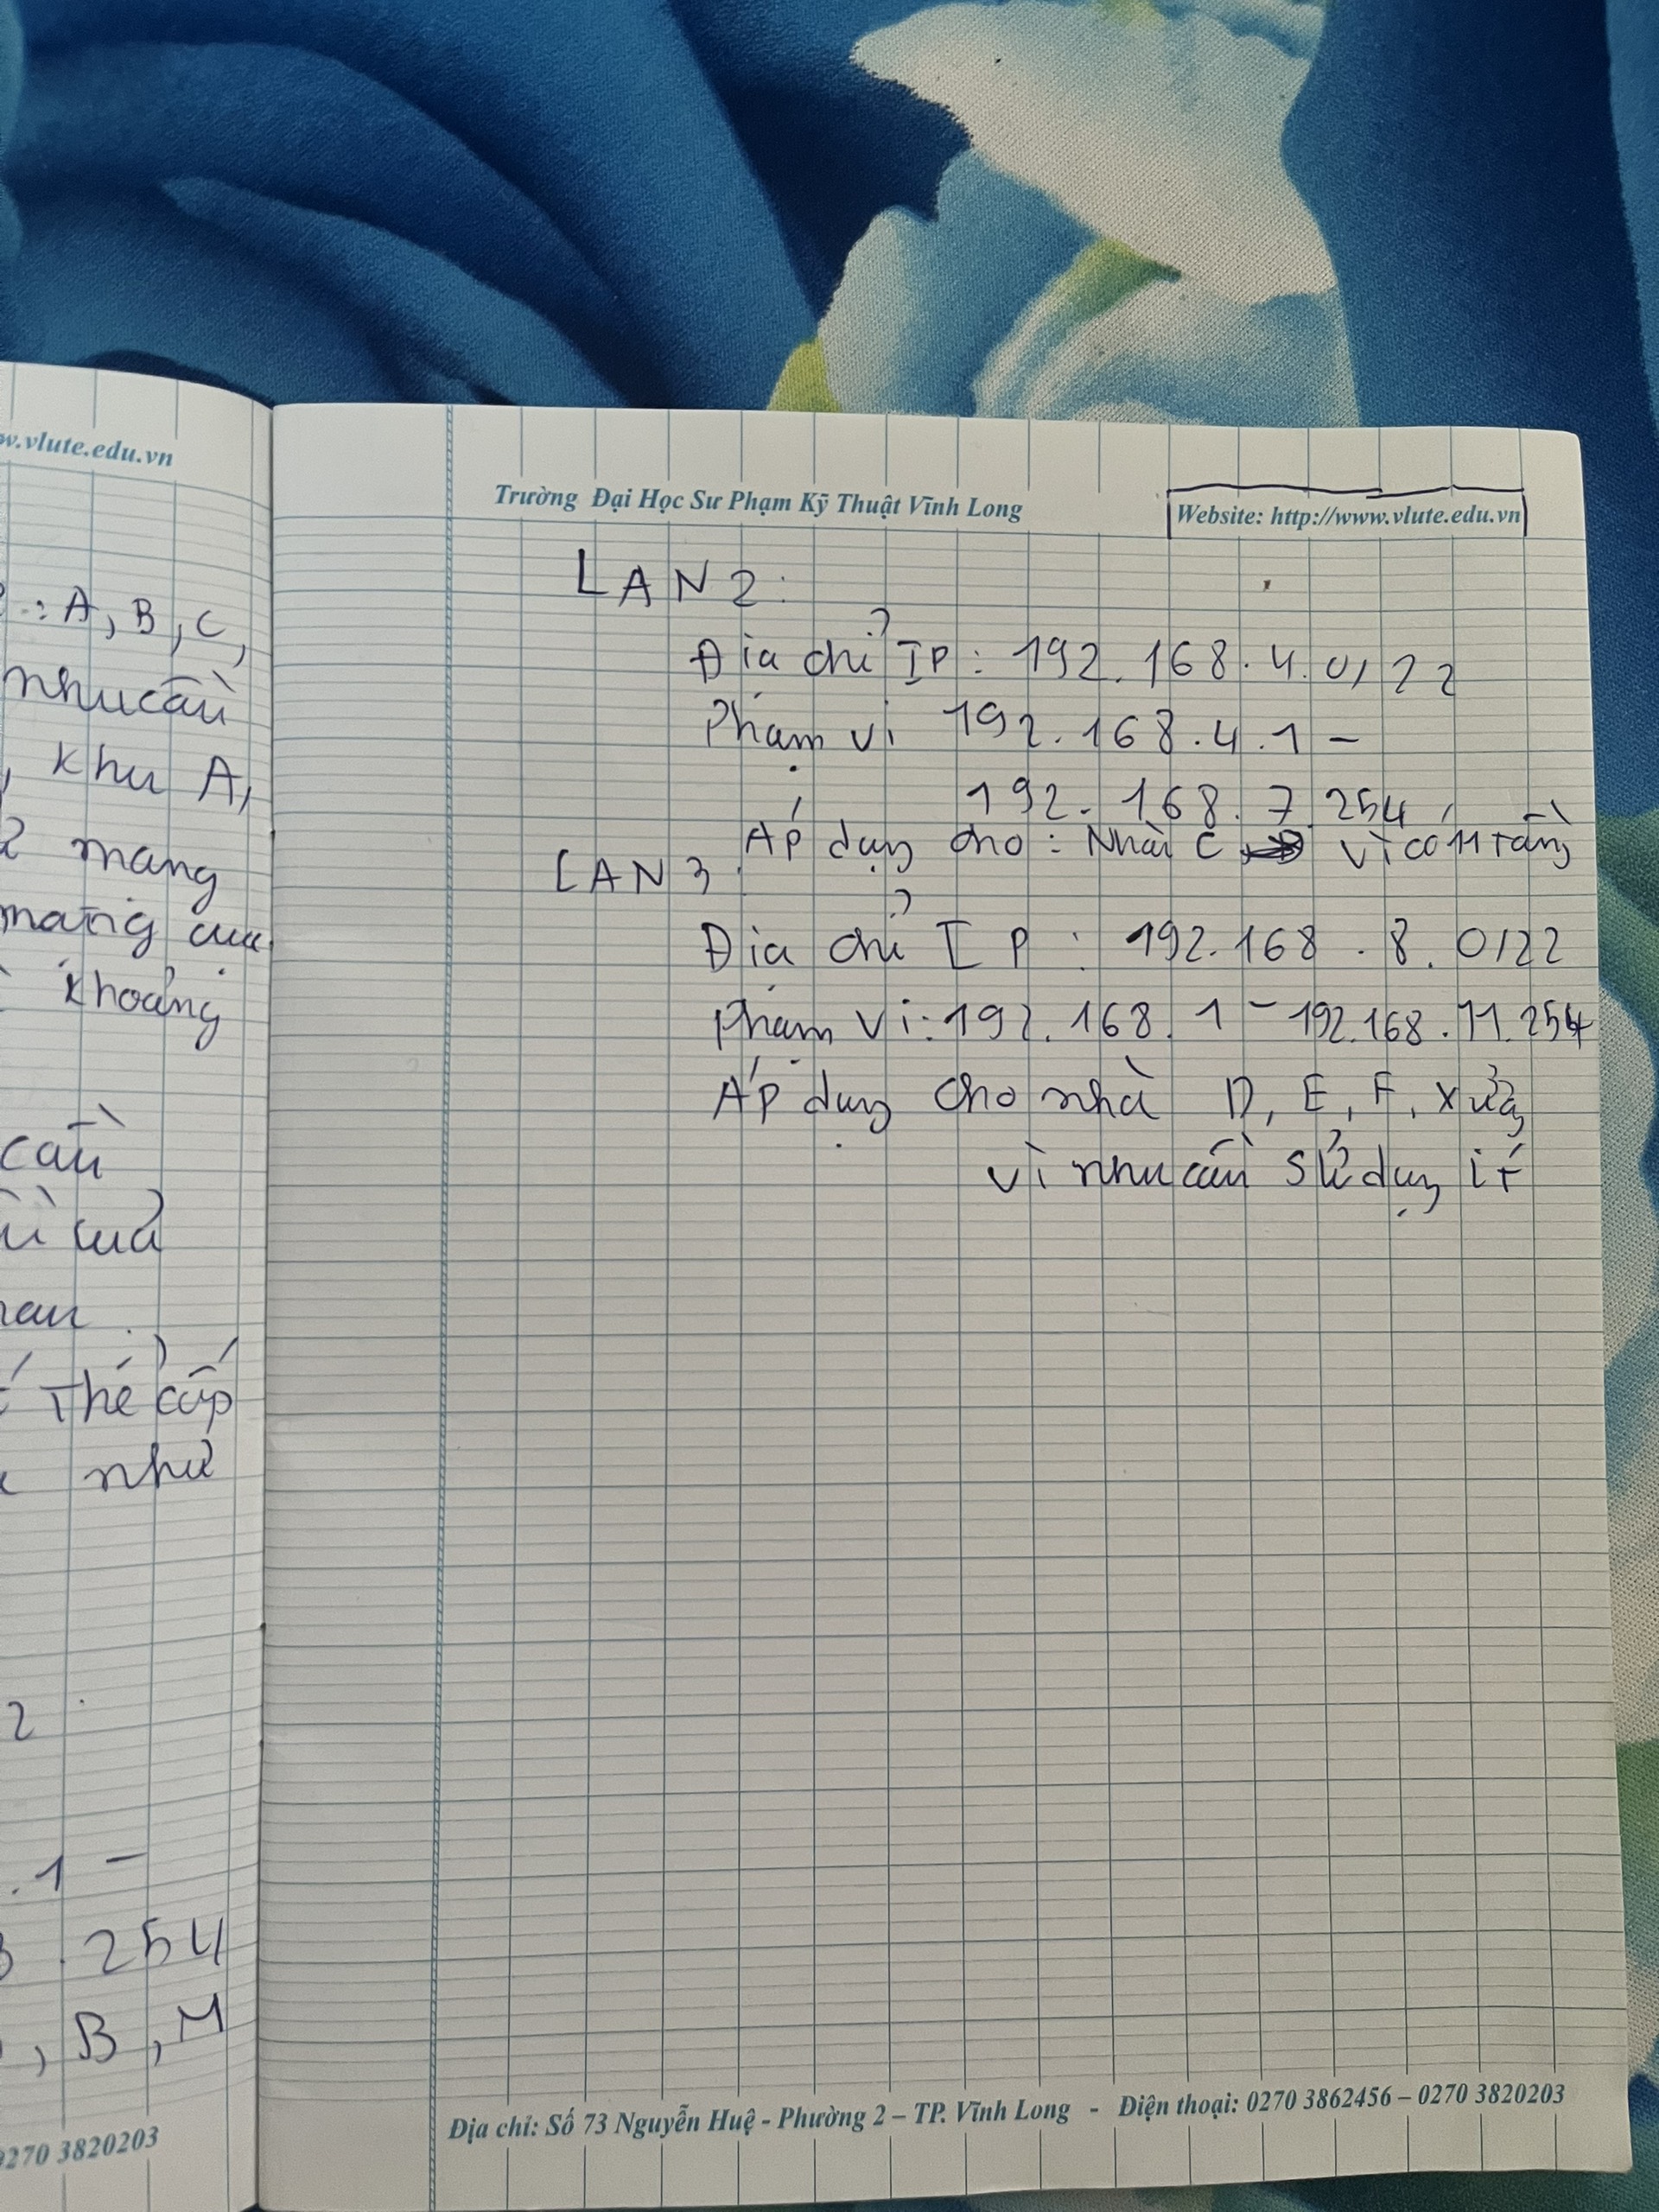 w.vlute.edu.vn
: A, B, C,
nhu cầu
, khu A,
mạng
mạng của
khoảng
cầu
của
Thể cấp
như
2
.1 -
.254
, B, M
0270 3820203
Trường Đại Học Sư Phạm Kỹ Thuật Vĩnh Long Website: http://www.vlute.edu.vn
LAN 2:
Địa chỉ IP: 192.168.4.0/22
Phạm vi 192.168.4.1 -
192.168.7.254
Áp dụng cho: Nhà C vì có 11 tầng
LAN 3
Địa chỉ IP: 192.168.8.0/22
Phạm vi: 192.168.1 - 192.168.11.254
Áp dụng cho nhà D, E, F, xưởng
vì nhu cầu sử dụng ít
Địa chỉ: Số 73 Nguyễn Huệ - Phường 2 – TP. Vĩnh Long - Điện thoại: 0270 3862456 – 0270 3820203